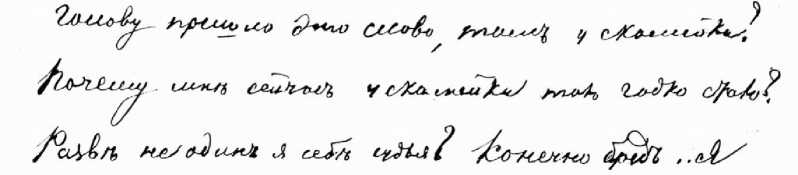 голову пришло это слово, тамъ у скамейки?
Почему мнѣ сейчасъ у скамейки такъ гадко стало?
Развѣ не одинъ я себѣ судья? Конечно бредъ .. Я